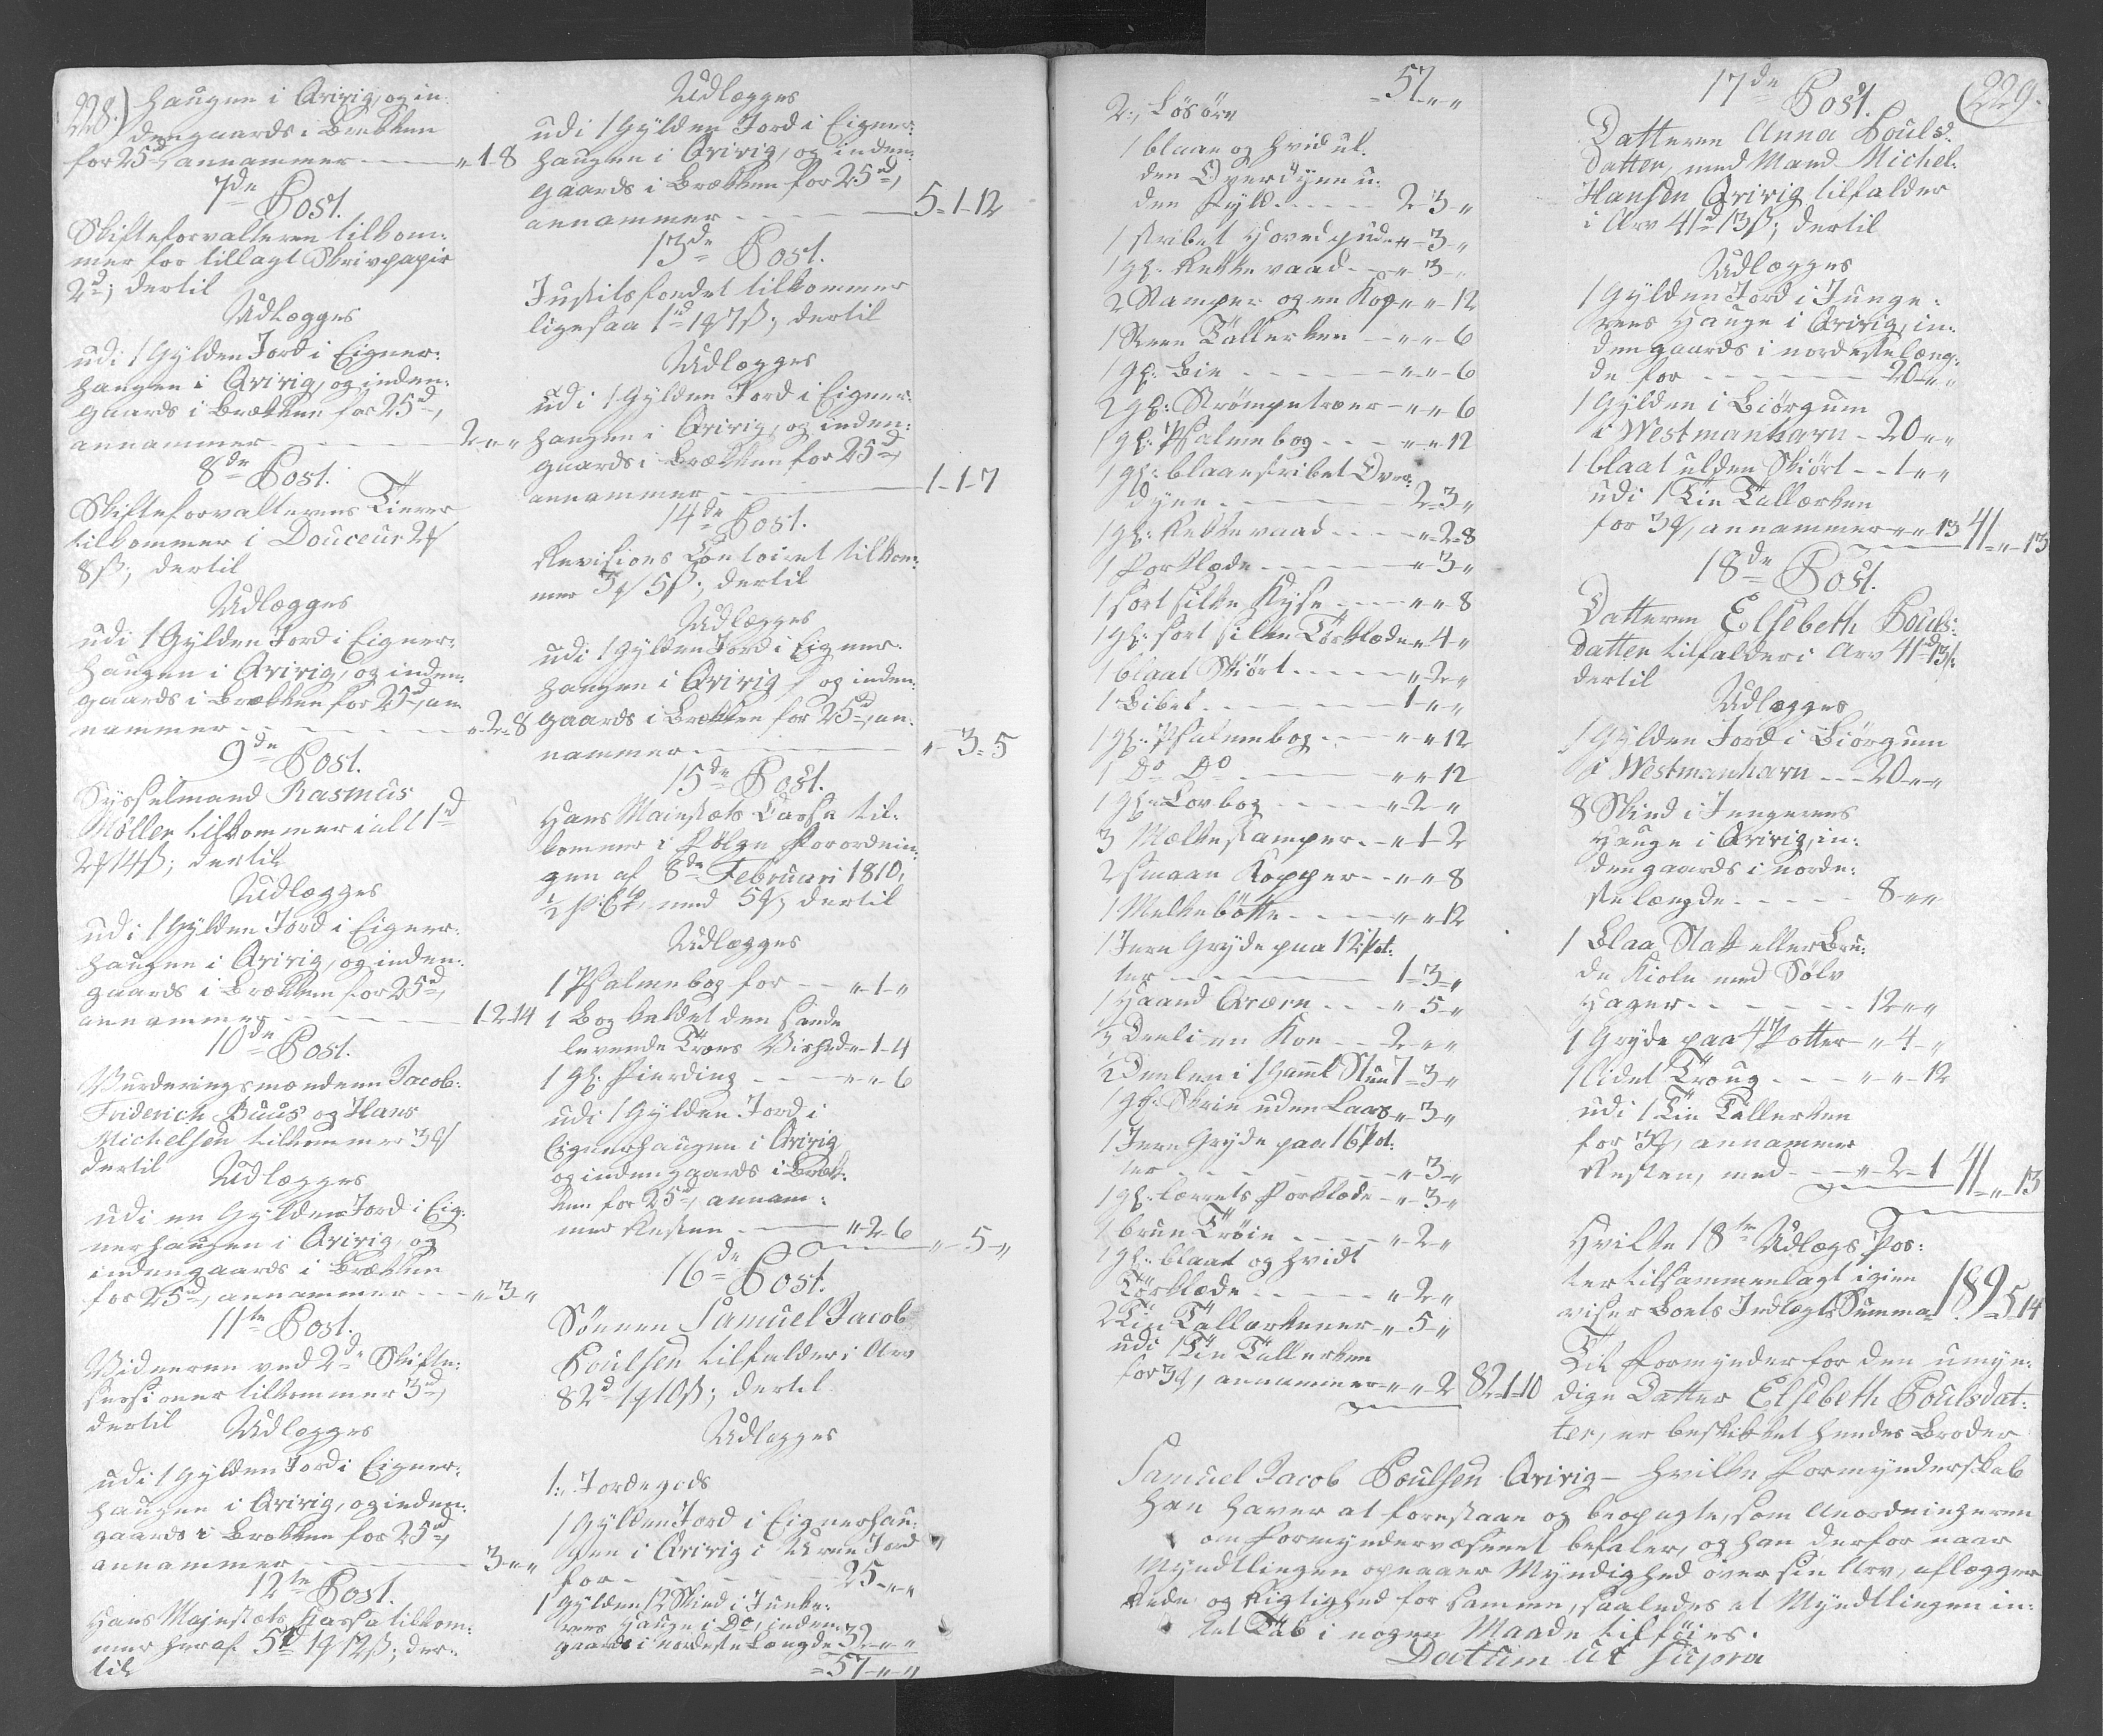 228.)
haugen i Qvivig, og in-
dengaards i Brekken
for 25d, annammer - - - " 1 - 8
7de Post.
Skifteforvalteren tilkom-
mer for tillagt Skrivpapir
2d; dertil
Udlægges
udi 1 Gylden Jord i Eigner-
haugen i Qvivig, og inden-
gaards i Brekken for 25d,
annammer - - - 2 - " - "
8de Post.
Skifteforvalterens Tiener
tilkommer i Douceur 2q
8ß; dertil
Udlægges
udi 1 Gylden Jord i Eigner-
haugen i Qvivig, og inden-
gaards i Brekken for 25d, an-
nammer - - - " - 2 - 8
9de Post.
Sysselmand Rasmus
Møller tilkommer i alt 1d
2q 14ß; dertil
Udlægges
udi 1 Gylden Jord i Eigner-
haugen i Qvivig, og inden-
gaards i Brekken for 25d,
annammer - - - 1 - 2 - 14
10de Post.
Vurderingsmændene Jacob
Friderich Buus og Hans
Michelsen tilkommer 3q
dertil
Udlægges
udi en Gylden Jord i Eig-
nerhaugen i Qvivig, og
indengaards i Brekken
for 25d, annammer - - - " - 3 - "
11te Post.
Vidnerne ved 2de Skifte-
sessioner tilkommer 3d,
dertil
Udlægges
udi 1 Gylden Jord i Eigner-
haugen i Qvivig, og inden-
gaards i Brekken for 25d,
annammer - - - 3 - " - "
12te Post.
Hans Majestæts Kassa tilkom-
mer heraf 5d 1q 12ß; der-
til
Udlægges
udi 1 Gylden Jord i Eigner-
haugen i Qvivig, og inden-
gaards i Brekken for 25d,
annammer - - - 5 - 1 - 12
13de Post.
Justitsfondet tilkommer
ligesaa 1d 1q 7ß; dertil
Udlægges
udi 1 Gylden Jord i Eigner-
haugen i Qvivig, og inden-
gaards i Brekken for 25d
annammer - - - 1 - 1 - 7
14de Post.
Revisions Contoiret tilkom-
mer 3q 5ß; dertil
Udlægges
udi 1 Gylden Jord i Eigner-
haugen i Qvivig, og inden-
gaards i Brekken for 25d, an-
nammer - - - " - 3 - 5
15de Post.
Hans Maiestæts Cassa til-
kommer i Følge Forordnin-
gen af 8de Februari 1810,
½ p Ct, med 5q; dertil
Udlægges
1 Psalmebog for - - " - 1 - "
1 Bog kaldet den sande
levende Troes Vished " - 1 - 4
1 gl: Fierding - - - " - " - 6
udi 1 Gylden Jord i
Eignerhaugen i Qvivig
og indengaards i Brek-
ken for 25d, annam-
mer Resten - - - " - 2 - 6 " - 5 - "
16de Post.
Sönnen Samuel Jacob
Poulsen tilfalder i Arv
82d 1q 10ß; dertil
Udlægges
1:, Jordegods
1 Gylden Jord i Eignerhau-
gen i Qvivig i Urene Jord
for - - - 25 - " - "
1 Gylden 12 Skind i Junke-
rens Hauge i Do, inden-
gaards i nordeste Længde 32 - " - "
= 57 - " - "
57 - " - "
2:, Lösöre
1 blaae og hvid ul-
den Overdyne u-
den Fyld - - - 2 - 3 - "
1 stribet Hovedpude " - 3 - "
1 gl: Rekkevaad - - " - 3 - "
2 Stamper og en Kop " - " - 12
1 Steen Tallerken - " - " - 6
1 gl: Bie - - - " - " - 6
2 gl: Strömpetræer - " - " - 6
1 gl: Psalmebog - - - " - " - 12
1 gl: blaaestribet Over-
dyne - - - 2 - 3 - "
1 gl: Rekkevaad - - - " - 2 - 8
1 Forklæde - - - " - 3 - "
1 sort silke Kyse - - - " - " - 8
1 gl: sort silke Törklæde " - 4 - "
1 blaat Skiört - - - " - 2 - "
1 Bibel - - - 1 - " - "
1 gl: Psalmebog - - - " - " - 12
1 Do Do - - - " - " - 12
1 gl: Lovbog - - - " - 2 - "
3 Mælkestamper - - " - 1 - 2
2 smaae Kopper - - " - " - 8
1 Melkebötte - - - " - " - 12
1 Jern Gryde paa 12 Pot-
ter - - - 1 - 3 - "
1 Haand Qværn - - - " - 5 - "
½ Deel i en Koe - - - 2 - " - "
½ Deelen i 1 gaml Stuut 1 - 3 - "
1 gl: Skrin uden Laas " - 3 - "
1 Jern Gryde paa 16 Pot-
ter - - - " - 3 - "
1 gl: lærrets Forklæde - " - 3 - "
1 bruun Tröie - - - " - 2 - "
1 gl: blaat og hvidt
Törklæde - - - " - 2 - "
2 Tin Tallerkener - " - 5 - "
udi 1 Tin Tallerken
for 3q, annammer - " - " - 2 82 - 1 - 10
(229.
17de Post.
Datteren Anna Pouls-
datter, med Mand Michel
Hansen Qvivig tilfalder
i Arv 41d 13ß; dertil
Udlægges
1 Gylden Jord i Junge-
rens Hauge i Qvivig, in-
dengaards i nordeste Læng-
de for - - - 20 - " - "
1 Gylden i Biörgum
i Westmanhavn - 20 - " - "
1 blaat ulden Skiört - - 1 - " - "
udi 1 Tin Tallerken
for 3q, annammer - " - " - 13 41 - " - 13
18de Post.
Datteren Elsebeth Pouls-
datter tilfalder i Arv 41d 13ß
dertil
Udlægges
1 Gylden Jord i Biörgum
i Westmanhavn - - - 20 - " - "
8 Skind i Jungerens
Hauge i Qvivig, in-
dengaards i norde-
ste længde - - - 8 - " - "
1 Blaa Stak eller Bru-
de Kiole med Sölv
Hager - - - 12 - " - "
1 Gryde paa 4 Potter - " - 4 - "
1 lidet Troug - - - " - " - 12
udi 1 Tin Tallerken
for 3q, annammer
Resten, med - - - " - 2 - 1 41 - " - 13
Hvilke 18te Udlægs Pos-
ter tilsammenlagt igien
viser Boets Indlægs Summa 189 - 5 - 14
Til Formynder for den umyn-
dige Datter Elsebeth Poulsdat-
ter, er beskikket hendes Broder
Samuel Jacob Poulsen Qvivig - hvilke Formynderskab
han haver at forestaae og beopagte, som Anordningerne
om Formyndervæsenet befaler, og han derfor naar
Myndtlingen opnaaer Myndighed over sin Arv, aflægger
Rede og Rigtighed for samme, saaledes at Myndtlingen in-
tet Tab i nogen Maade tilföies.
Datum ut supra